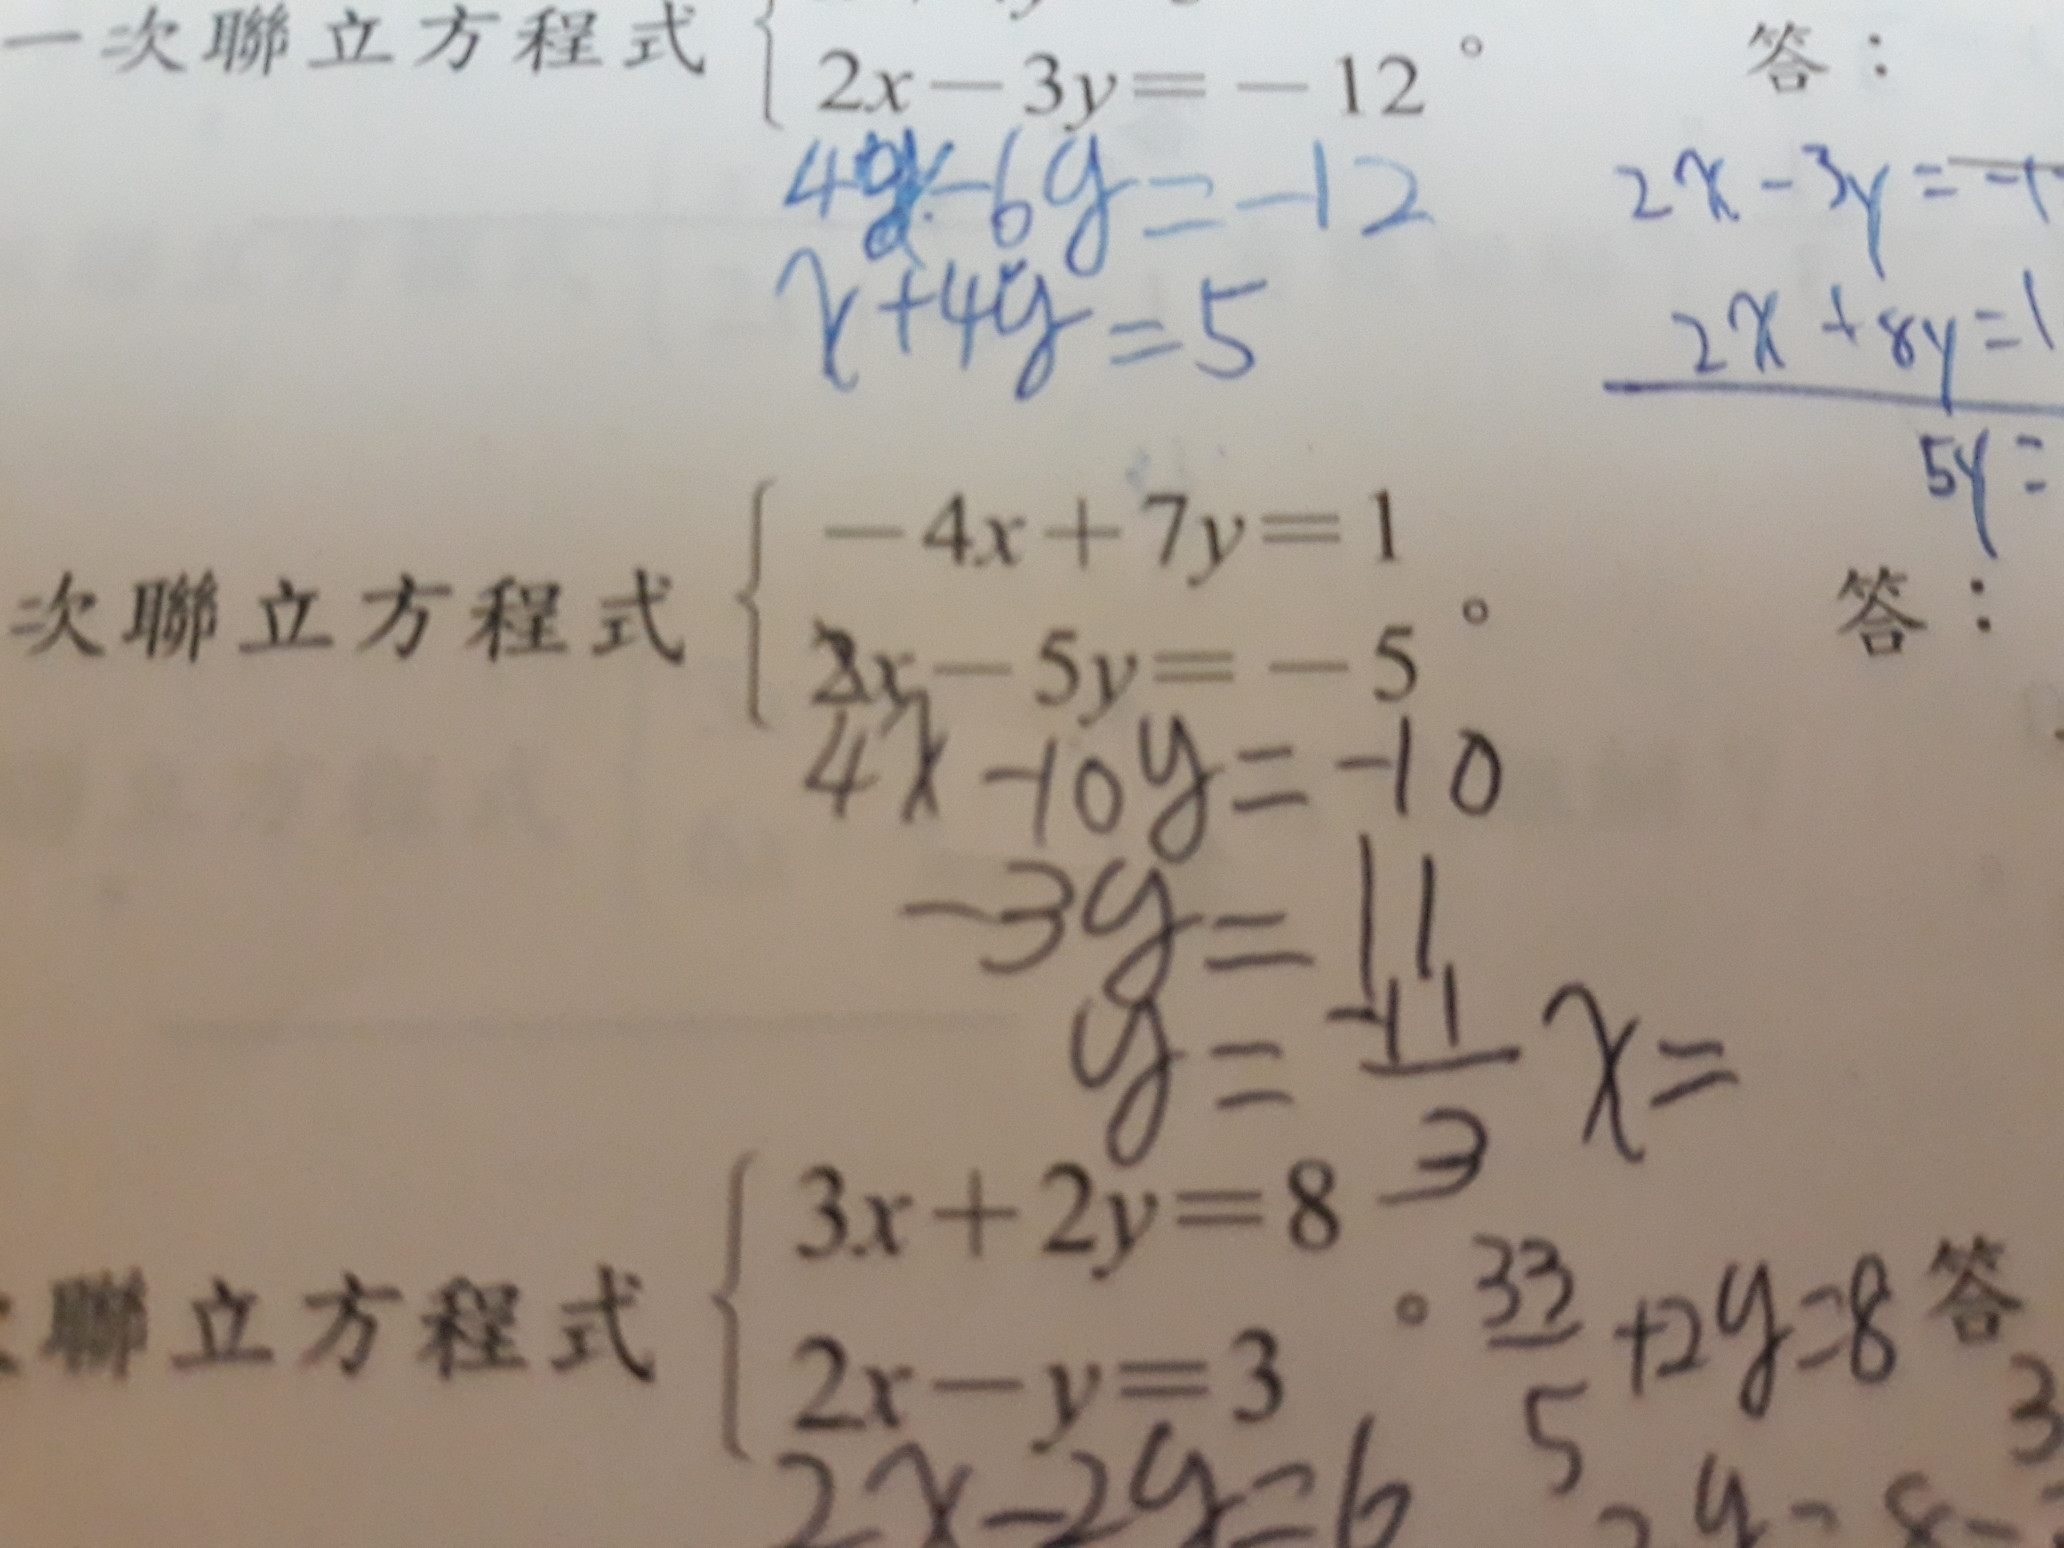 一次聯立方程式
2x－3y＝－12。
答：
-6y=-12
x+4y=5
2x-3y=
2x+8y=1
5y=
次聯立方程式
－4x＋7y＝1
x－5y＝－5。
答：
4x-10y=-10
-3y=11
y=-11/3 x=
聯立方程式
3x＋2y＝8
2x－y＝3。
33/5+2y=8
答
3
2x-2y=6
2y=8-